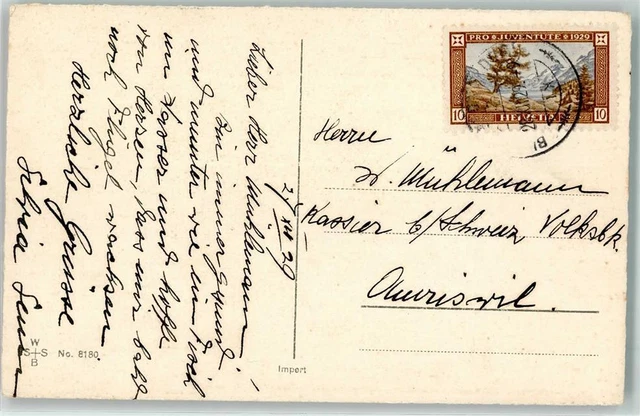 27 XII 29
Lieber Herr Mühlemann!
Bin immer gesund
und munter wie ein Fisch
im Wasser und hoffe
von Herzen, dass mir bald
noch Flügel wachsen.
Herzliche Grüsse
PRO JUVENTUTE 1929
10 HELVETIA 10
Herrn
W. Mühlemann
Kassier b/Schweiz Volksbk
Amriswil.
W
S+S No. 8180
B
Import